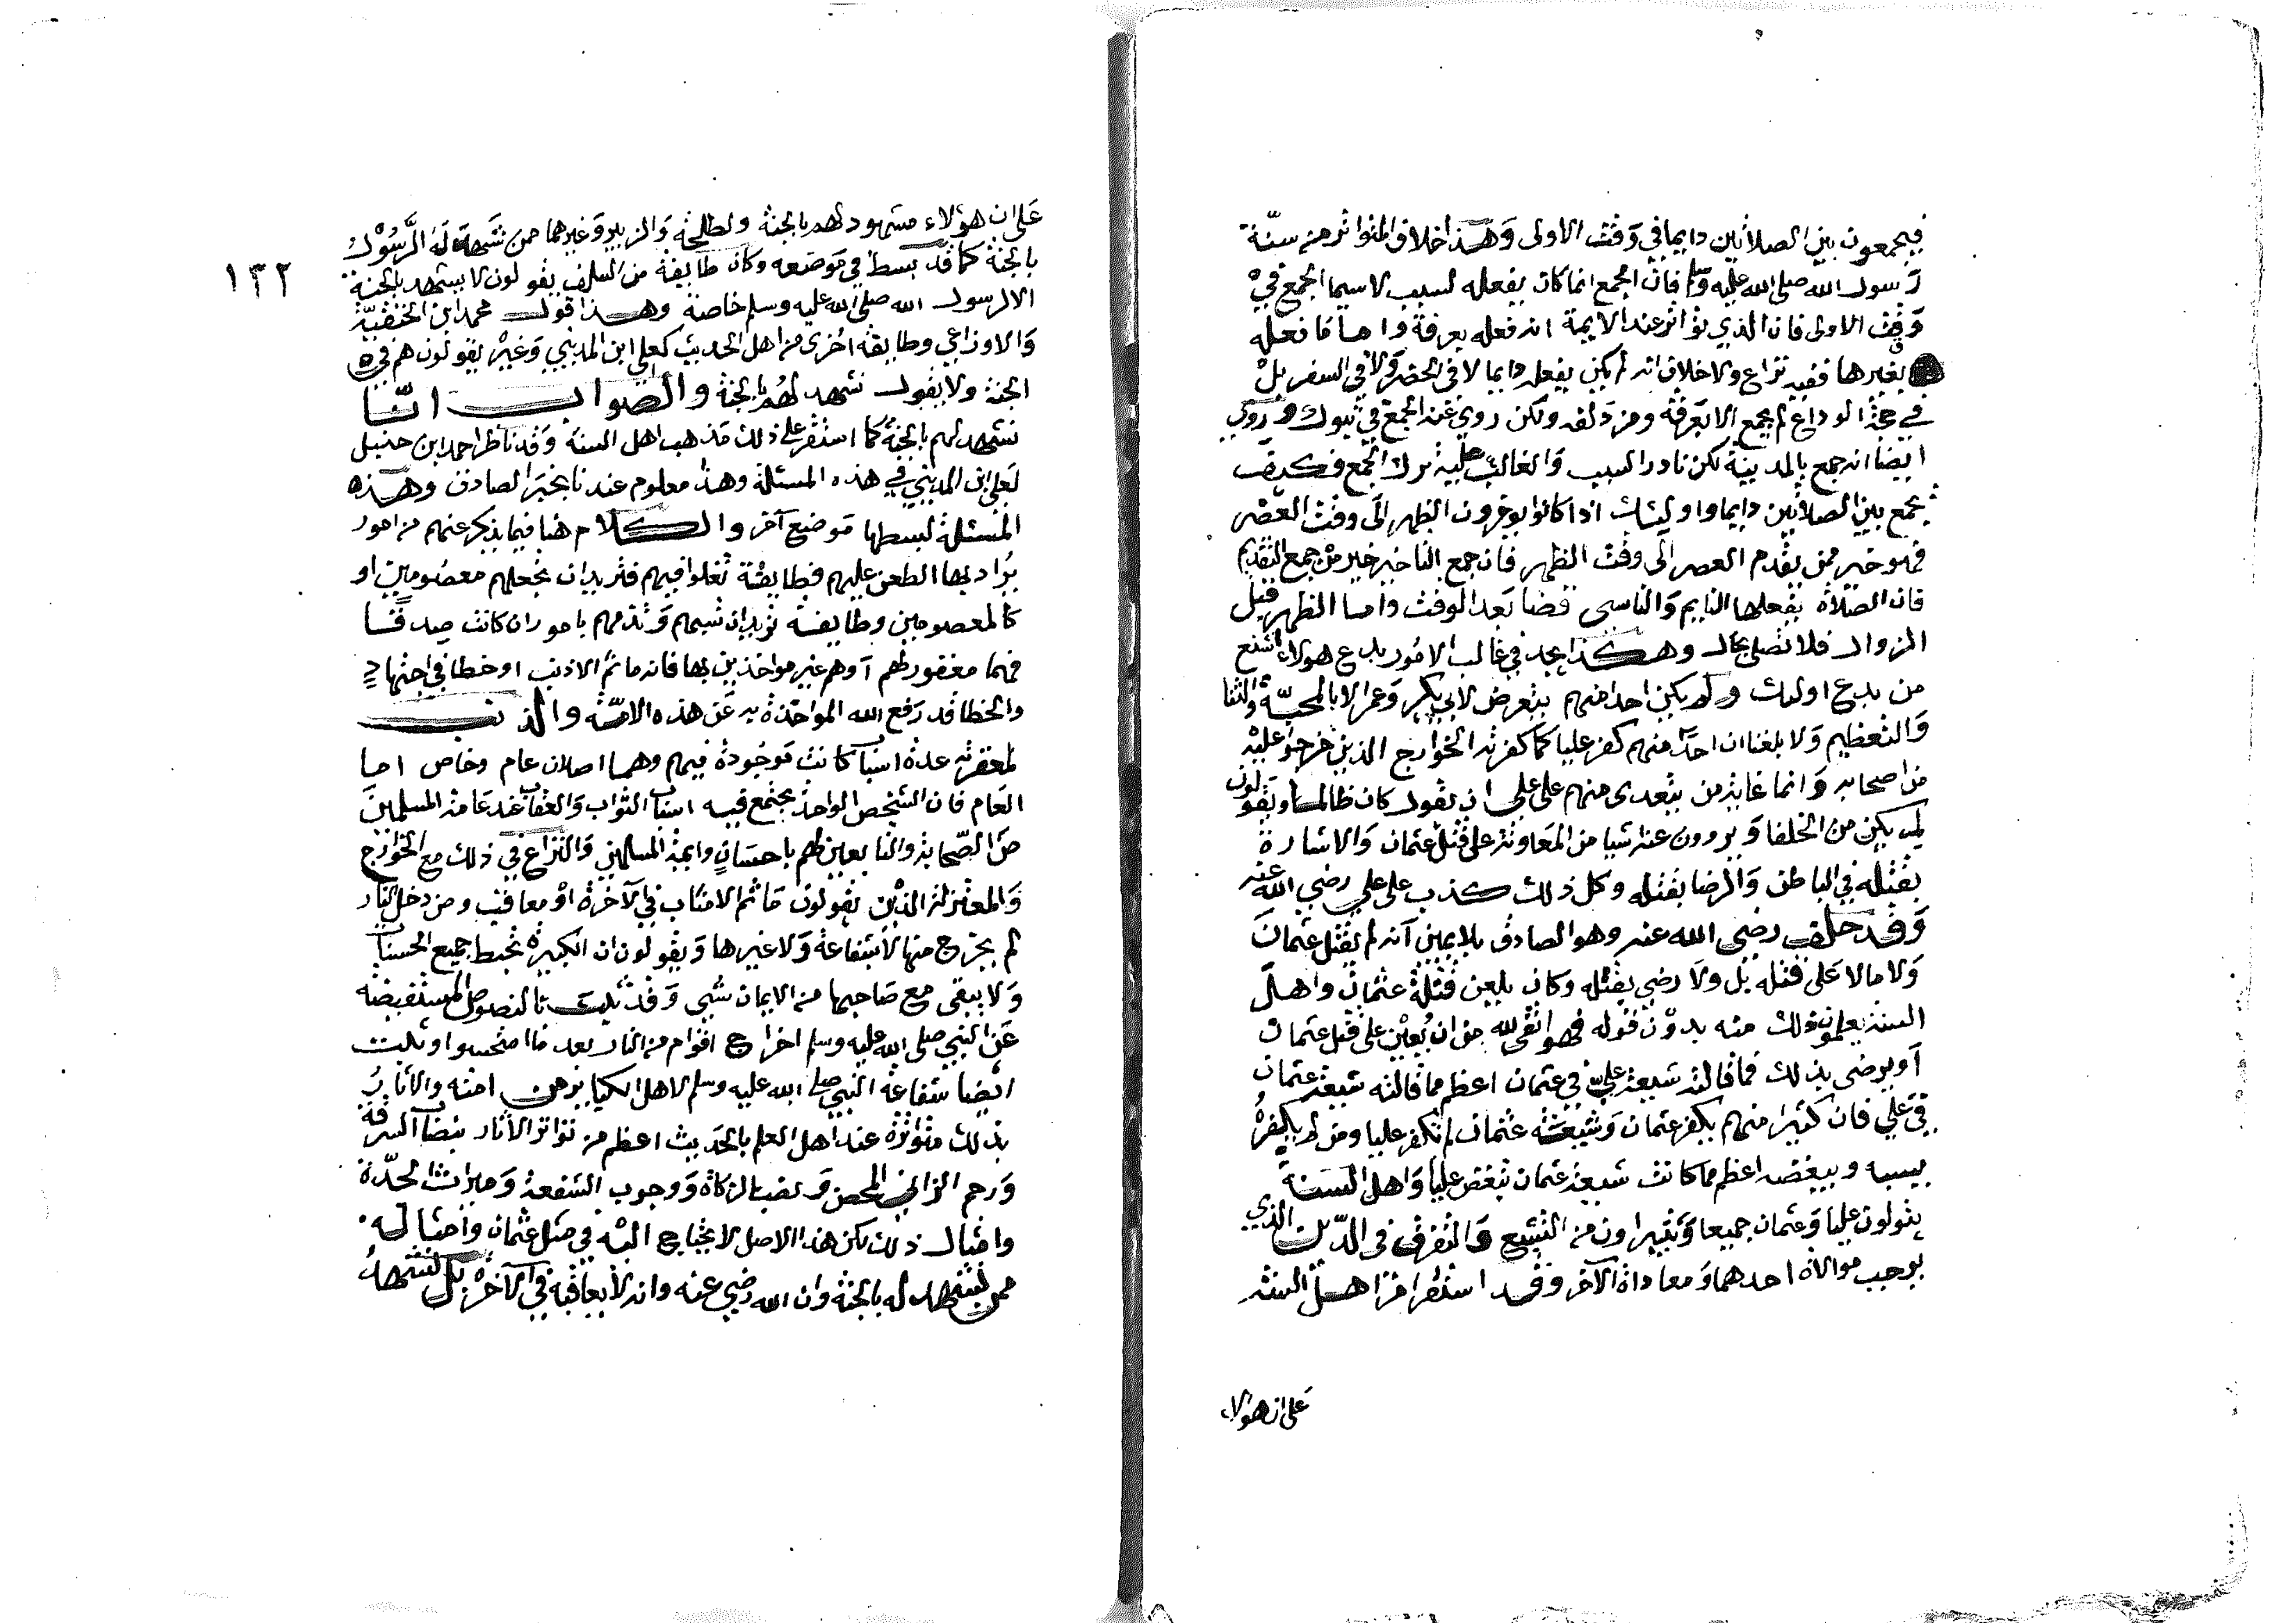 فيجمعون بين الصلاتين دايما في وقت الاولى وهذا خلاف المتواتر من سنة
رسول الله صلى الله عليه وسلم فان الجمع انما كان يفعله لسبب لا سيما الجمع في
وقت الاولى فان الذي تواتر عند الايمة انه فعله بعرفة واما ما فعله
بغيرها ففيه نزاع ولا خلاف انه لم يكن يفعله دايما لا في الحضر ولا في السفر بل
في حجة الوداع لم يجمع الا بعرفة ومزدلفه ولكن روي عنه الجمع في تبوك وروي
ايضا انه جمع بالمدينة لكن نادرا لسبب والغالب عليه ترك الجمع فكيف
يجمع بين الصلاتين دايما واوليك اذا كانوا يوخرون الظهر الى وقت العصر
فهو خير ممن يقدم العصر الى وقت الظهر فان جمع التاخير خير من جمع التقديم
فان الصلاة يفعلها النايم والناسي قضا بعد الوقت واما الظهر قبل
الزوال فلا تصلى بحال وهكذا تجد في غالب الامور بدع هولاء اشنع
من بدع اوليك ولم يكن احد منهم يتعرض لابي بكر وعمر الا بالمحبة والثنا
والتعظيم ولا بلغنا ان احدا منهم كفر عليا كما كفرته الخوارج الذين خرجوا عليه
من اصحابه وانما غاية من يتعدى منهم على علي ان يقول كان ظالما ويقولون
لم يكن من الخلفا ويروون عنه اشيا من المعاونة على قتل عثمان والاشارة
بقتله في الباطن والرضا بقتله وكل ذلك كذب على علي رضي الله عنه
وقد حلف رضي الله عنه وهو الصادق بلا يمين انه لم يقتل عثمان
ولا مالا على قتله بل ولا رضي بقتله وكان يلعن قتلة عثمان واهل
السنة يعلمون ذلك منه بدون قوله فهو اتقى لله من ان يعين على قتل عثمان
او يرضى بذلك فما قالته شيعة علي في عثمان اعظم مما قالته شيعة عثمان
في علي فان كثيرا منهم يكفر عثمان وشيعة عثمان لم تكفر عليا ومن لم يكفره
يسبه ويبغضه اعظم مما كانت شيعة عثمان تبغض عليا واهل السنة
يتولون عليا وعثمان جميعا ويتبراون من التشيع والتفرق في الدين الذي
يوجب موالاة احدهما ومعاداة الاخر وقد استقر امر اهل السنة
على ان هولاء
١٣٢
على ان هؤلاء مشهود لهم بالجنة ولطلحة والزبير وغيرهما ممن شهد له الرسول
بالجنة كما قد بسط في موضعه وكان طايفة من السلف يقولون لا يشهد بالجنة
الا لرسول الله صلى الله عليه وسلم خاصة وهذا قول محمد ابن الحنفية
والاوزاعي وطايفة اخرى من اهل الحديث كعلي ابن المديني وغيره يقولون هم في
الجنة ولا يقول نشهد لهم بالجنة والصواب انا
نشهد لهم بالجنة كما استقر على ذلك مذهب اهل السنة وقد ناظر احمد ابن حنبل
لعلي ابن المديني في هذه المسئلة وهذا معلوم عندنا بخبر الصادق وهذه
المسئلة لبسطها موضع آخر والكلام هنا فيما يذكر عنهم من امور
يراد بها الطعن عليهم فطايفة تغلوا فيهم فتريد ان تجعلهم معصومين او
كالمعصومين وطايفة تريد ان تسبهم وتذمهم بامور ان كانت صدقا
فهما مغفور لهم او هم غير مواخذين بها فانه ما ثم الا ذنب او خطا في اجتهاد
والخطا قد رفع الله المواخذة به عن هذه الامة والذنب
لمغفرته عدة اسباب كانت موجودة فيهم وهما اصلان عام وخاص اما
العام فان الشخص الواحد يجتمع فيه اسباب الثواب والعقاب عند عامة المسلمين
من الصحابة والتابعين لهم باحسان وايمة المسلمين والنزاع في ذلك مع الخوارج
والمعتزلة الذين يقولون ما ثم الا مثاب في الآخرة او معاقب ومن دخل النار
لم يخرج منها لا بشفاعة ولا غيرها ويقولون ان الكبيرة تحبط جميع الحسنات
ولا يبقى مع صاحبها من الايمان شي وقد ثبت بالنصوص المستفيضة
عن النبي صلى الله عليه وسلم اخراج اقوام من النار بعد ما امتحشوا وثبت
ايضا شفاعة النبي صلى الله عليه وسلم لاهل الكباير من امته والاثار
بذلك متواترة عند اهل العلم بالحديث اعظم من تواتر الاثار بنصاب السرقة
ورجم الزاني المحصن ونصب الزكاة ووجوب الشفعة وميراث الجدة
وامثال ذلك لكن هذا الاصل لا يحتاج اليه في مثل عثمان وامثاله
ممن يشهد له بالجنة وان الله رضي عنه وانه لا يعاقبه في الآخرة بل نشهد